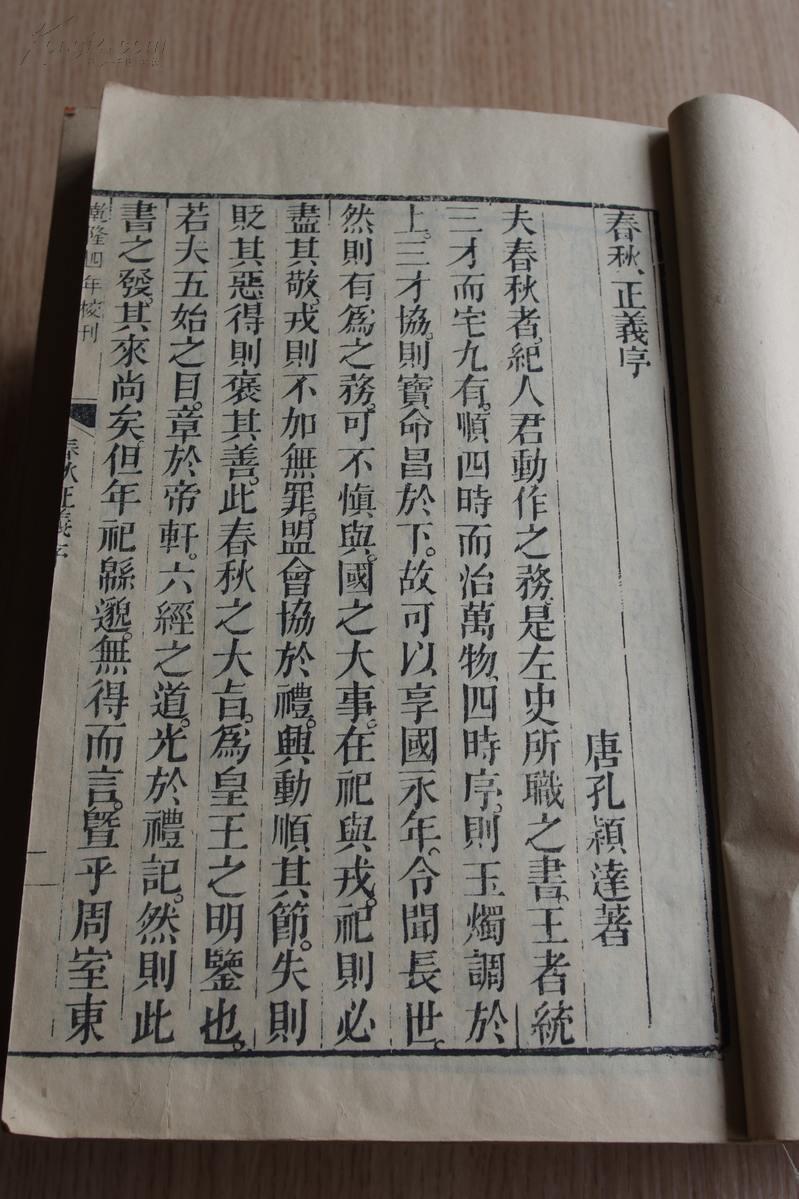 春秋正義序
唐孔穎達著
夫春秋者。紀人君動作之務。是左史所職之書。王者統
三才而宅九有。順四時而治萬物。四時序。則玉燭調於
上。三才協。則寶命昌於下。故可以享國永年。令聞長世。
然則有爲之務。可不愼與。國之大事。在祀與戎。祀則必
盡其敬。戎則不加無罪。盟會協於禮。興動順其節。失則
貶其惡。得則褒其善。此春秋之大旨。爲皇王之明鑒也。
若夫五始之目。章於帝軒。六經之道。光於禮記。然則此
書之發。其來尚矣。但年祀緜邈。無得而言。曁乎周室東
乾隆四年校刊
春秋正義序